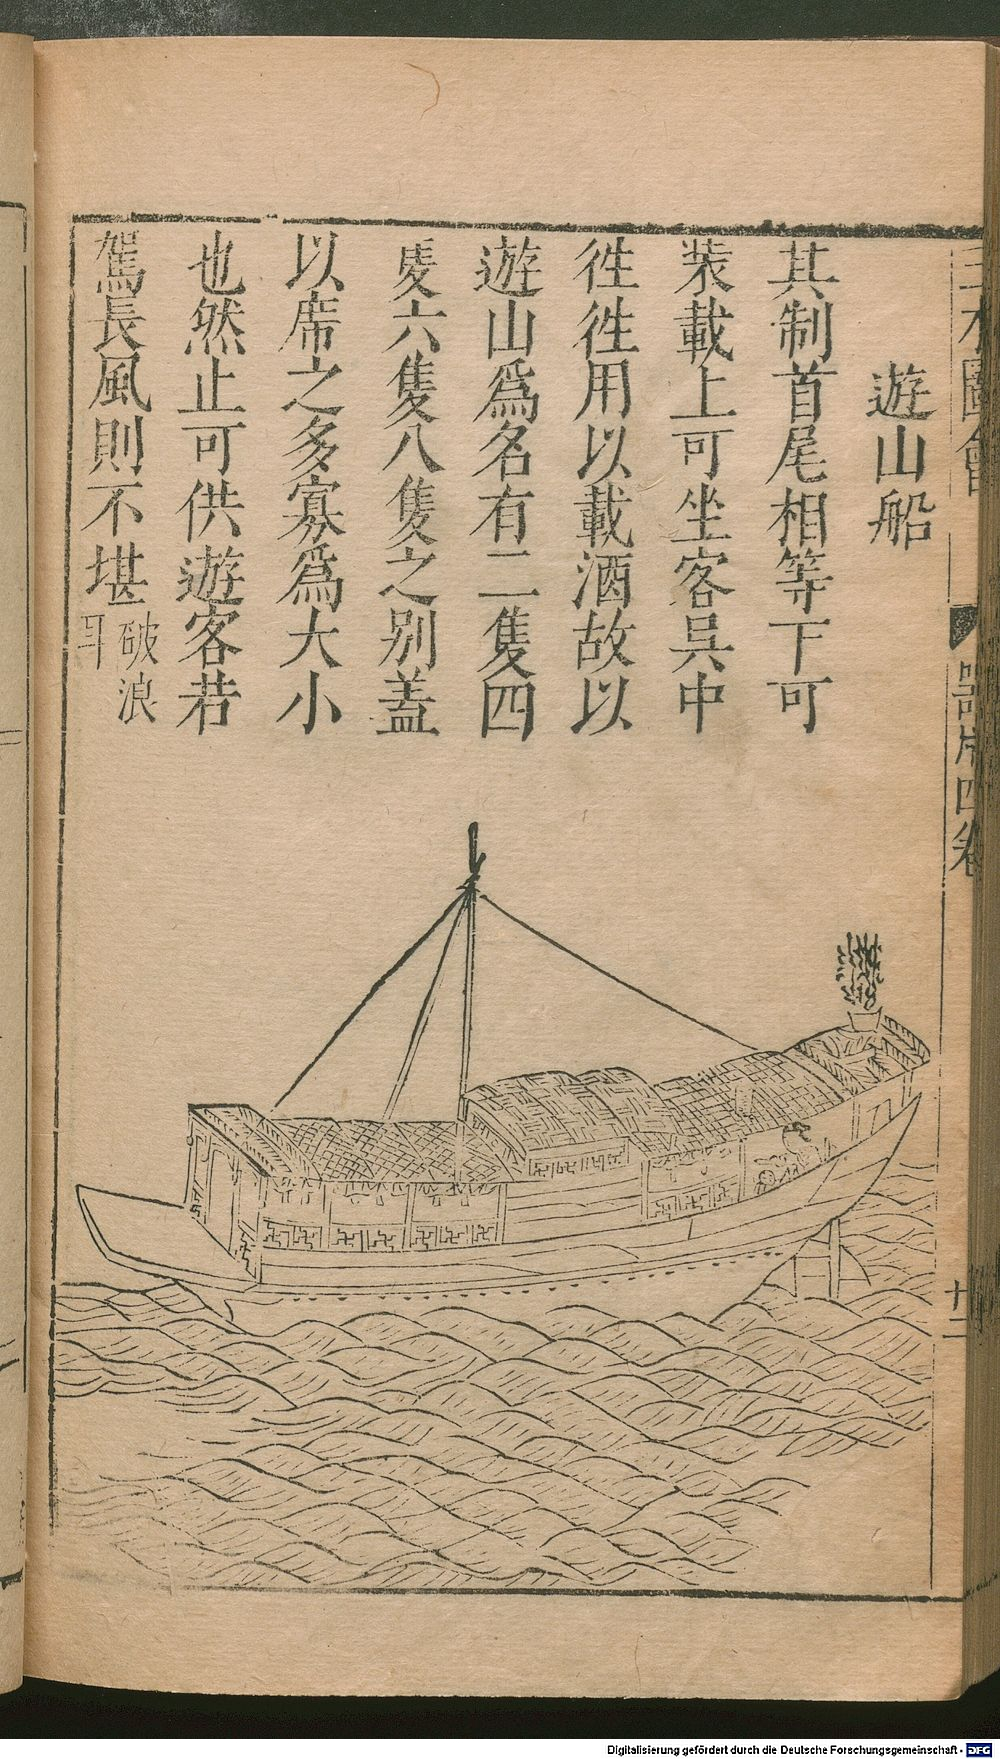 三才圖會
器用四卷
十二
遊山船
其制首尾相等下可
装載上可坐客呉中
徃徃用以載酒故以
遊山爲名有二隻四
隻六隻八隻之别蓋
以席之多寡爲大小
也然止可供遊客若
駕長風則不堪破浪
耳
Digitalisierung gefördert durch die Deutsche Forschungsgemeinschaft - DFG